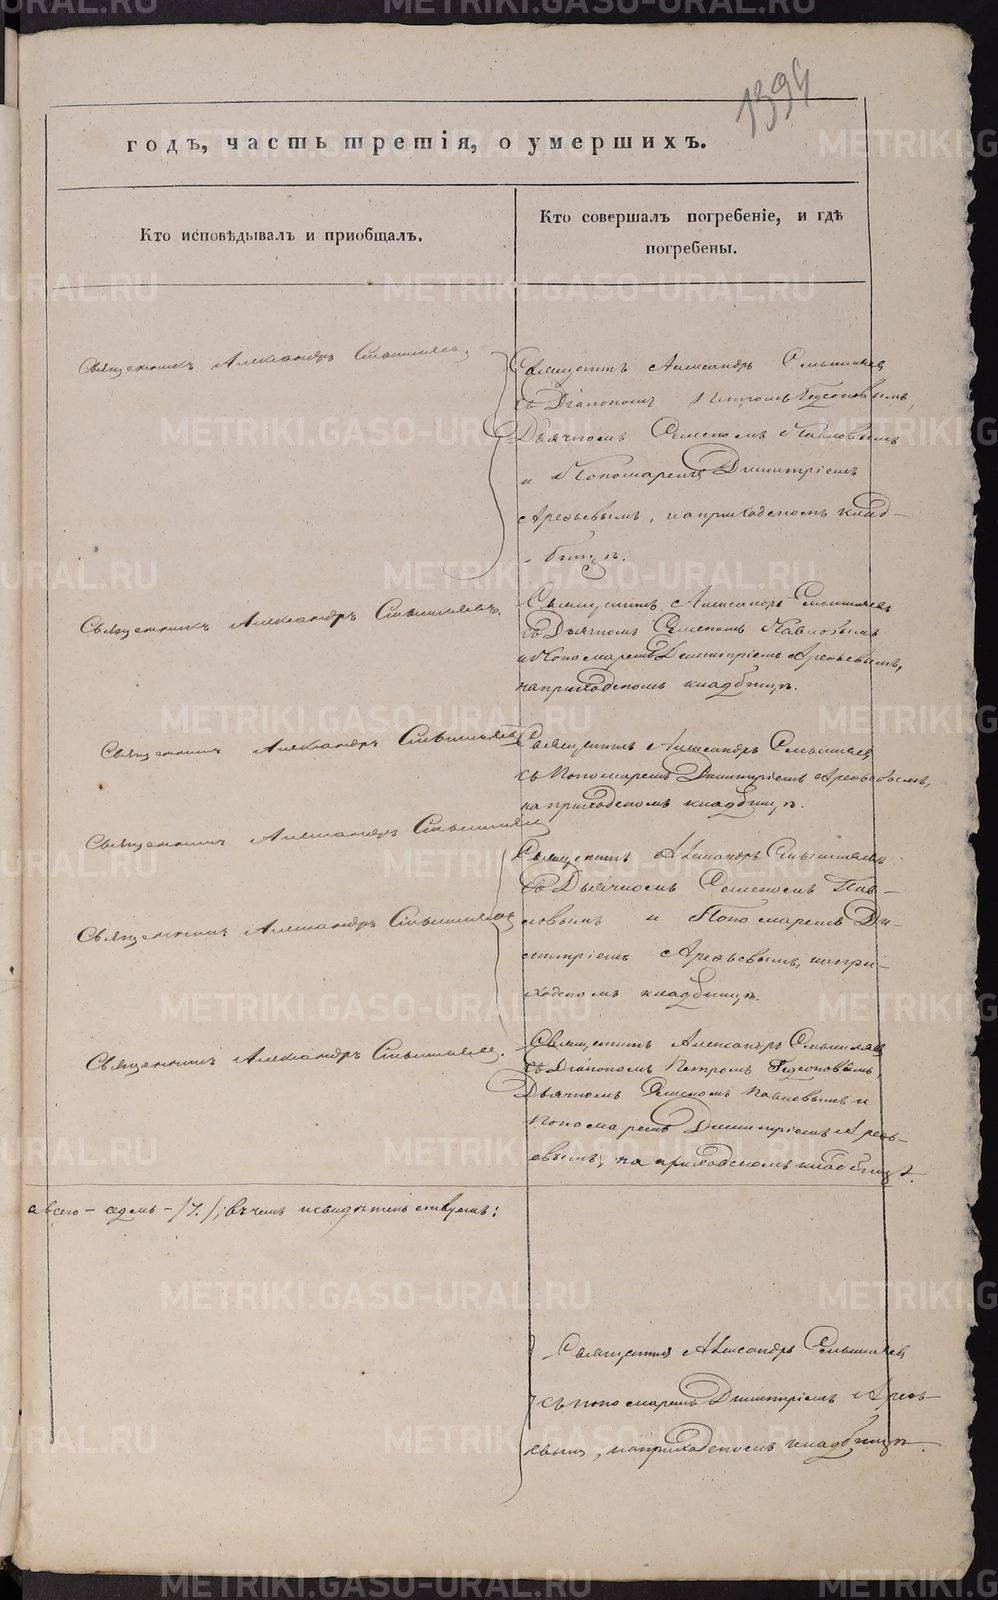 1394
годъ, часть третія, о умершихъ.
Кто исповѣдывалъ и пріобщалъ.
Кто совершалъ погребеніе, и гдѣ
погребены.
Священникъ Александръ
Священникъ Александръ
съ Діакономъ Петромъ
Дьячкомъ Семеномъ Павловымъ
и Пономаремъ Димитріемъ
Арефьевымъ, на приходскомъ клад-
бищѣ.
Священникъ Александръ
Священникъ Александръ
съ Дьячкомъ Семеномъ Павловымъ
и Пономаремъ Димитріемъ Арефьевымъ,
на приходскомъ кладбищѣ.
Священникъ Александръ
Священникъ Александръ
съ Пономаремъ Димитріемъ Арефьевымъ,
на приходскомъ кладбищѣ.
Священникъ Александръ
Священникъ Александръ
съ Дьячкомъ Семеномъ Пав-
ловымъ и Пономаремъ Ди-
митріемъ Арефьевымъ, на при-
ходскомъ кладбищѣ.
Священникъ Александръ
Священникъ Александръ
Священникъ Александръ
съ Діакономъ Петромъ
Дьячкомъ Семеномъ Павловымъ и
Пономаремъ Димитріемъ Арефь-
евымъ, на приходскомъ кладбищѣ.
а всего - седмь - /7./; въ чемъ и свидѣтельствуемъ:
Священникъ Александръ
съ пономаремъ Димитріемъ Арефь-
евымъ, на приходскомъ кладбищѣ.
METRIKI.GASO-URAL.RU